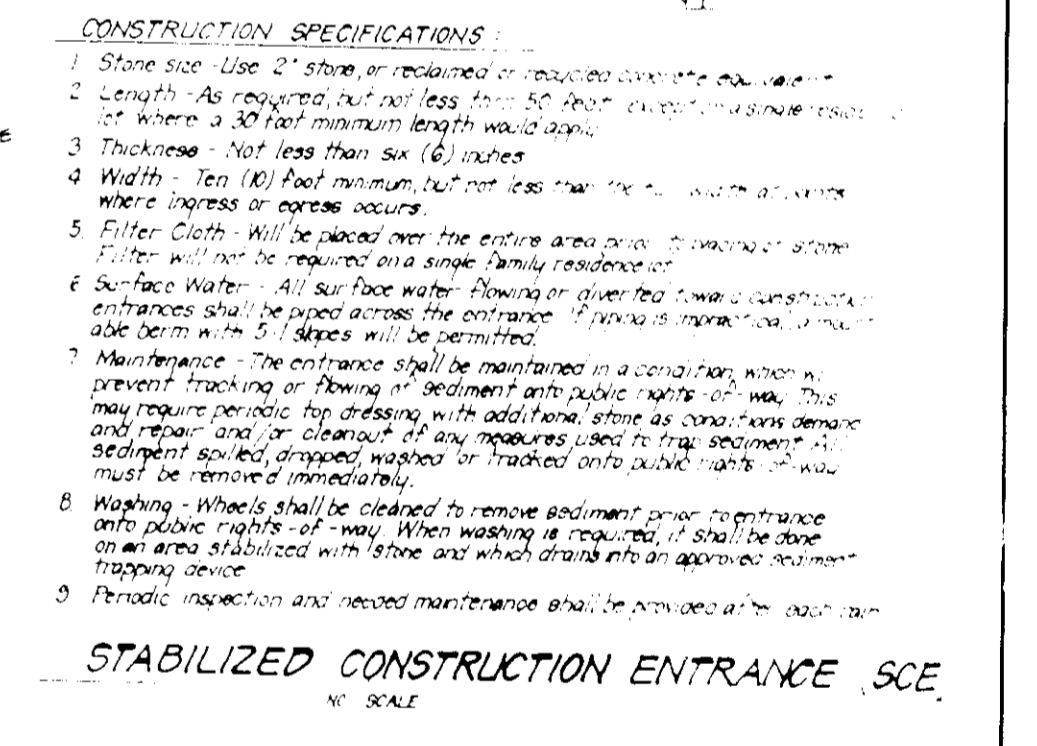 CONSTRUCTION SPECIFICATIONS :
1 Stone size - Use 2" stone, or reclaimed or recycled concrete equivalent
2 Length - As required, but not less than 50 feet except on a single
lot where a 30 foot minimum length would apply
3 Thickness - Not less than six (6) inches
4 Width - Ten (10) foot minimum, but not less than the width at points
where ingress or egress occurs.
5. Filter Cloth - Will be placed over the entire area prior to placing of stone
Filter will not be required on a single family residence lot
6 Surface Water - All surface water flowing or diverted toward construction
entrances shall be piped across the entrance If piping is impractical, a mount
able berm with 5:1 slopes will be permitted.
7 Maintenance - The entrance shall be maintained in a condition, which
prevent tracking or flowing of sediment onto public rights-of-way. This
may require periodic top dressing with additional stone as conditions demand
and repair and/or cleanout of any measures used to trap sediment. All
sediment spilled, dropped, washed or tracked onto public rights-of-way
must be removed immediately.
8. Washing - Wheels shall be cleaned to remove sediment prior to entrance
onto public rights-of-way. When washing is required, it shall be done
on an area stabilized with stone and which drains into an approved sediment
trapping device
9 Periodic inspection and needed maintenance shall be provided after each rain
STABILIZED CONSTRUCTION ENTRANCE SCE
NO SCALE